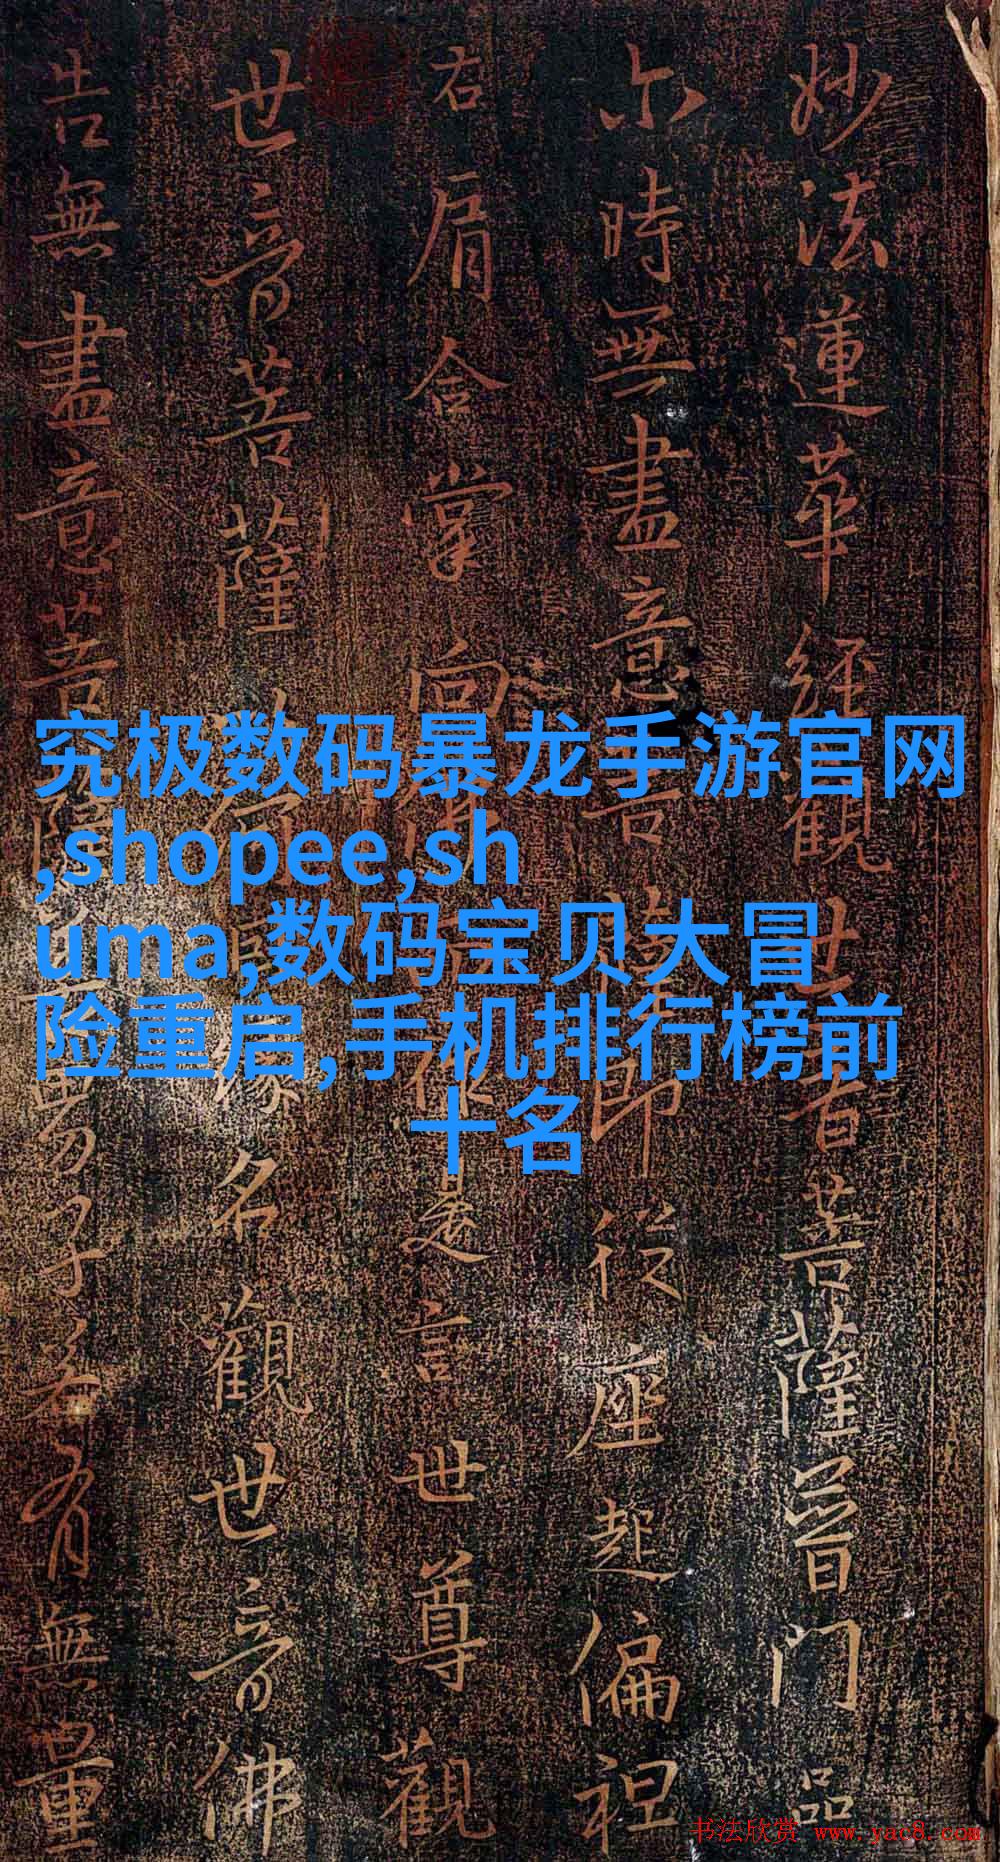 妙法蓮華經觀世音菩薩普門品
尒時無盡意菩薩即從座起偏袒
右肩合掌向佛而作是言世尊觀
世音菩薩以何因緣名觀世音佛
告無盡意菩薩善男子若有無量
究极数码暴龙手游官网
,shopee,sh
uma,数码宝贝大冒
险重启,手机排行榜前
十名
书法欣赏 www.yac8.com